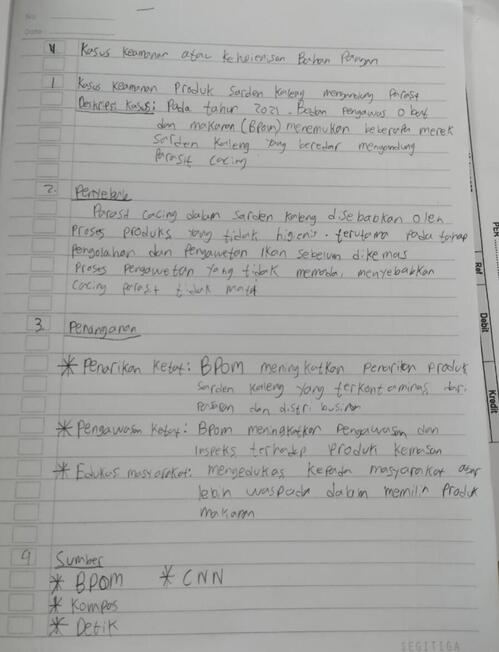 No
Date
V Kasus Keamanan atau Kehigienisan Bahan Pangan
1 Kasus Keamanan Produk Sarden Kaleng mengandung Parasit
Deskripsi Kasus: Pada tahun 2021. Badan Pengawas Obat
dan makanan (BPOM) menemukan beberapa merek
Sarden Kaleng yang beredar mengandung
Parasit cacing
2. Penyebab
Parasit cacing dalam sarden kaleng disebabkan oleh
Proses produksi yang tidak higienis. terutama pada tahap
Pengolahan dan Pengawetan Ikan sebelum dikemas
Proses Pengawetan yang tidak memadai, menyebabkan
Cacing parasit tidak mati
3. Penanganan
* Penarikan Ketat: BPOM meningkatkan Penarikan Produk
Sarden Kaleng yang terkontaminasi dari
dan distribusinya
* Pengawasan Ketat: BPOM meningkatkan Pengawasan dan
Inspeksi terhadap Produk Kemasan
* Edukasi masyarakat: mengedukasi kepada masyarakat agar
lebih waspada dalam memilih Produk
makanan
4 Sumber
* BPOM * CNN
* Kompas
* Detik
SEGITIGA
PER
Ref
Debit
Kredit